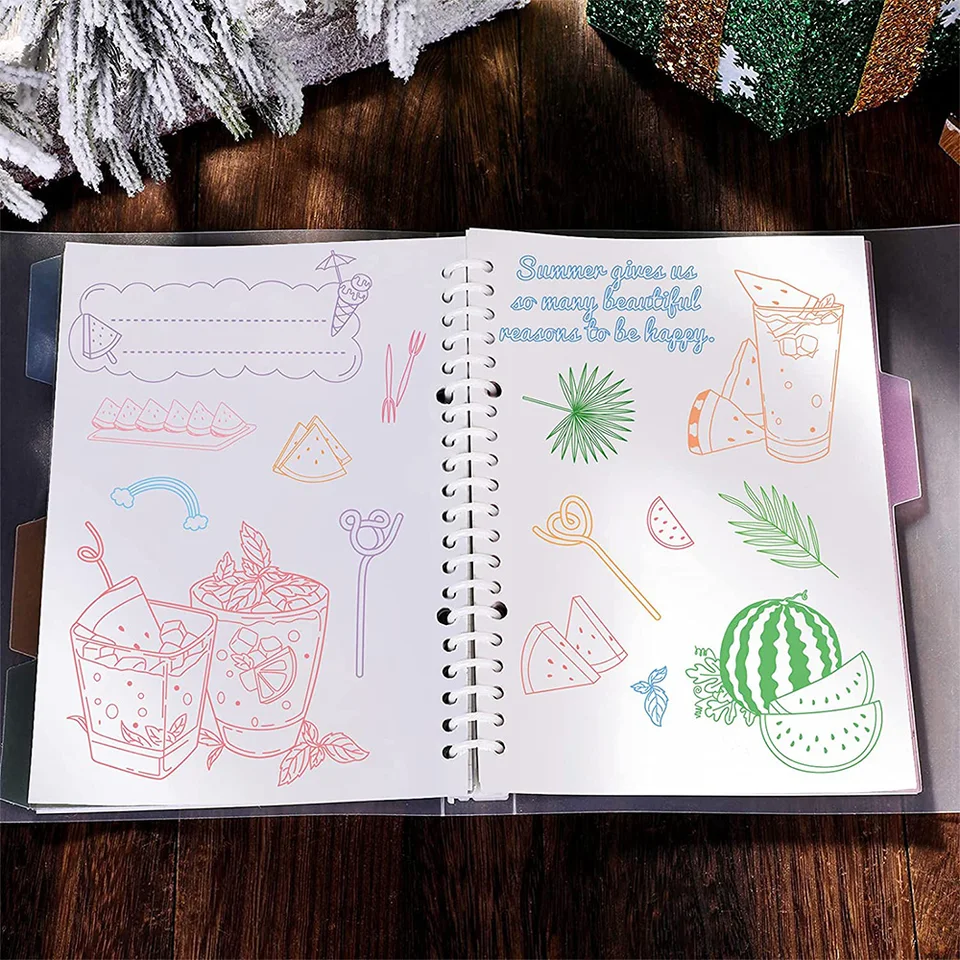 Summer gives us
so many beautiful
reasons to be happy.